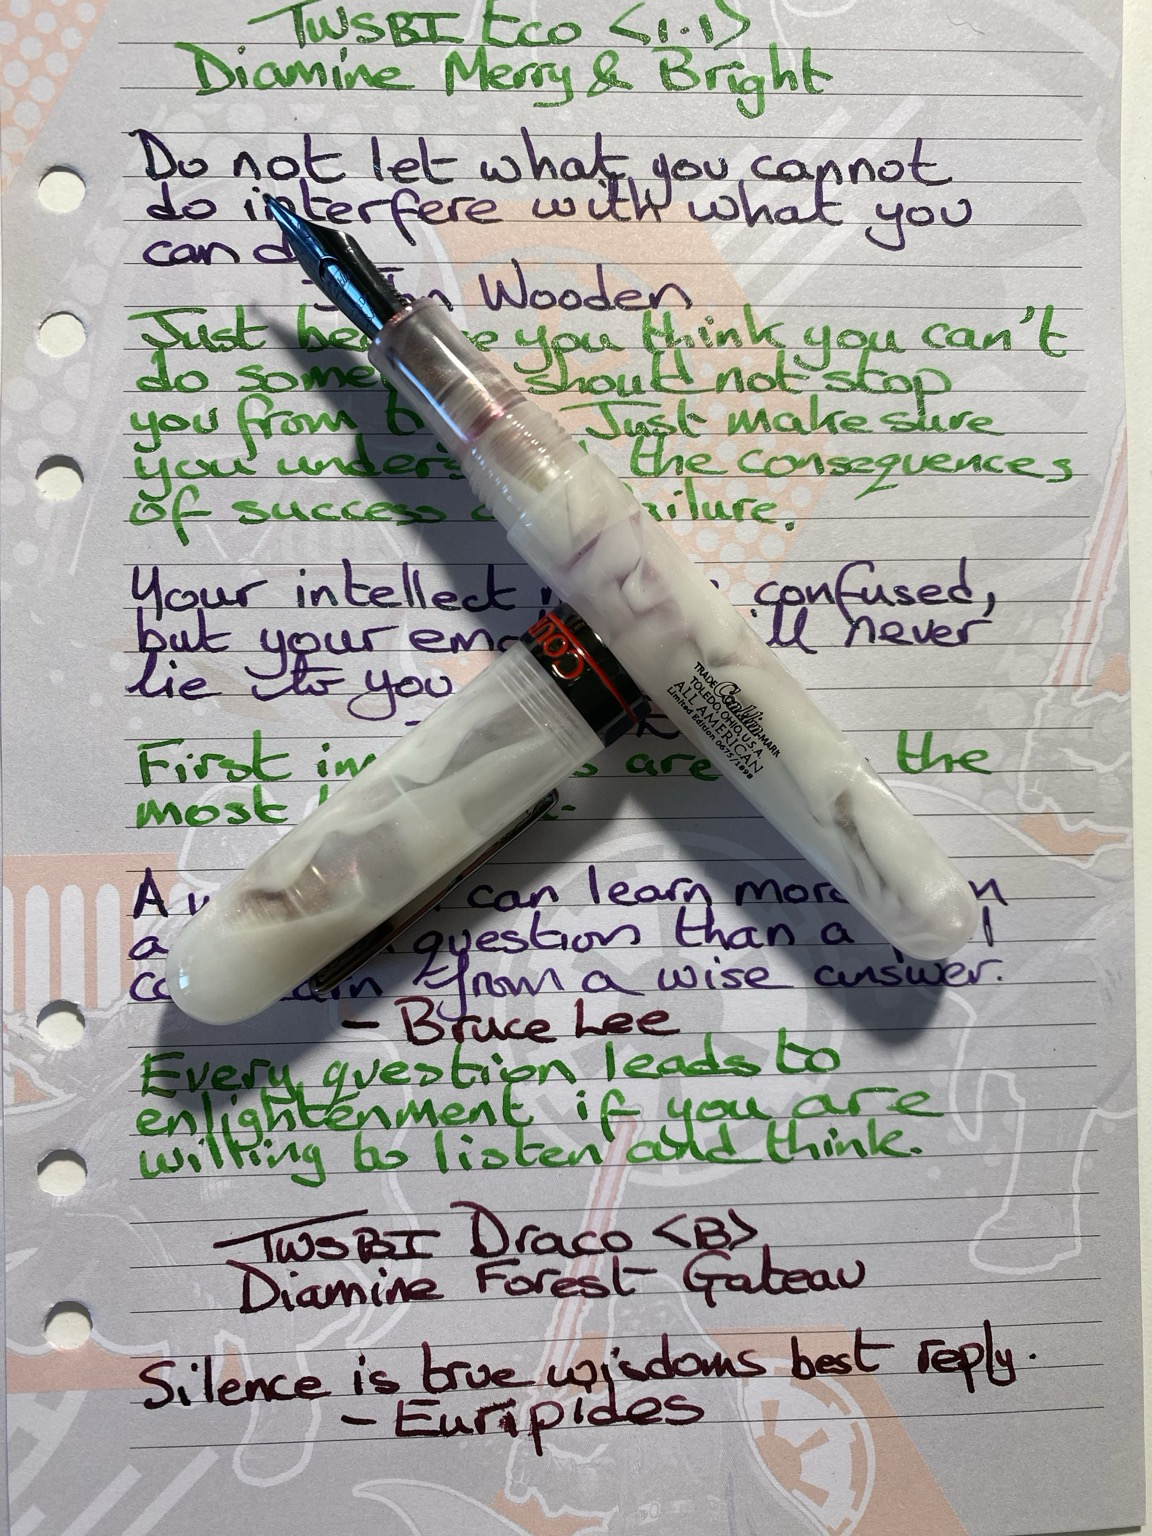 TWSBI Eco <1.1>
Diamine Merry & Bright
Do not let what you cannot
do interfere with what you
can
Wooden
Just you think you can't
do should not stop
you from Just make sure
you the consequences
of success
Your intellect confused,
but your never
lie to you
First are the
most
A can learn
a question than a
from a wise answer.
- Bruce Lee
Every question leads to
enlightenment if you are
willing to listen and think.
TWSBI Draco <B>
Diamine Forest Gateau
Silence is true wisdoms best reply.
- Euripides
TRADE Conklin MARK
TOLEDO, OHIO, U.S.A.
ALL AMERICAN
Limited Edition 0675/1898